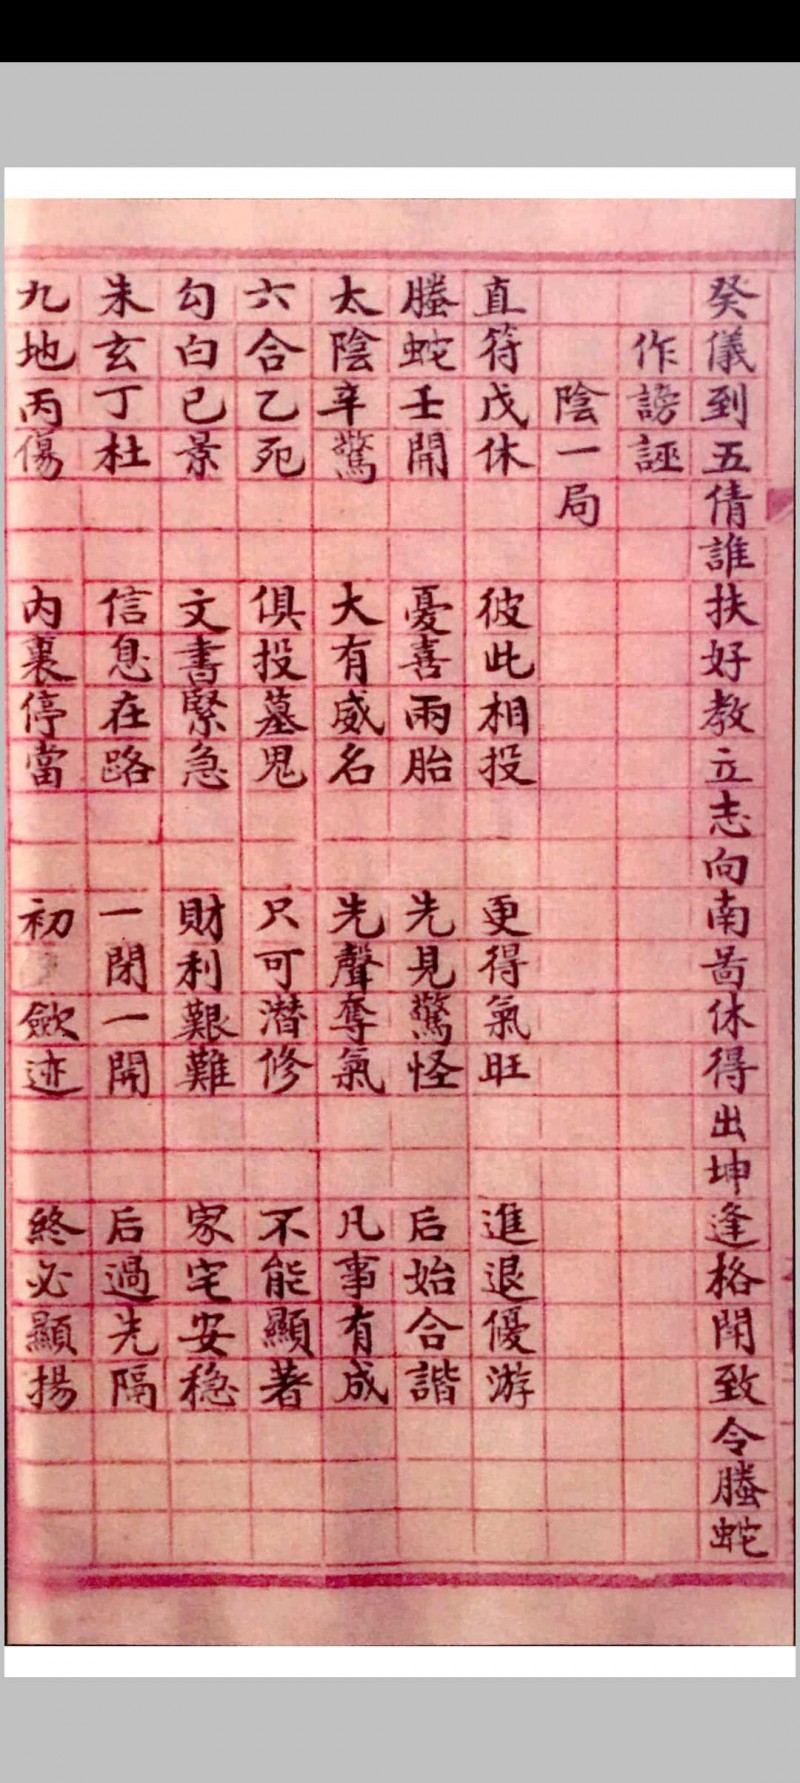 癸儀到五倩誰扶好教立志向南啚休得出坤逢格閗致令螣蛇
作謗誣
陰一局
直符戊休 彼此相投 更得氣旺 進退優游
螣蛇壬開 憂喜兩胎 先見驚怪 后始合諧
太陰辛驚 大有威名 先聲奪氣 凡事有成
六合乙死 俱投墓鬼 只可潛修 不能顯著
勾白己景 文書緊急 財利艱難 家宅安穏
朱玄丁杜 信息在路 一閉一開 后過先隔
九地丙傷 內裏停當 初 歛迹 終必顯揚